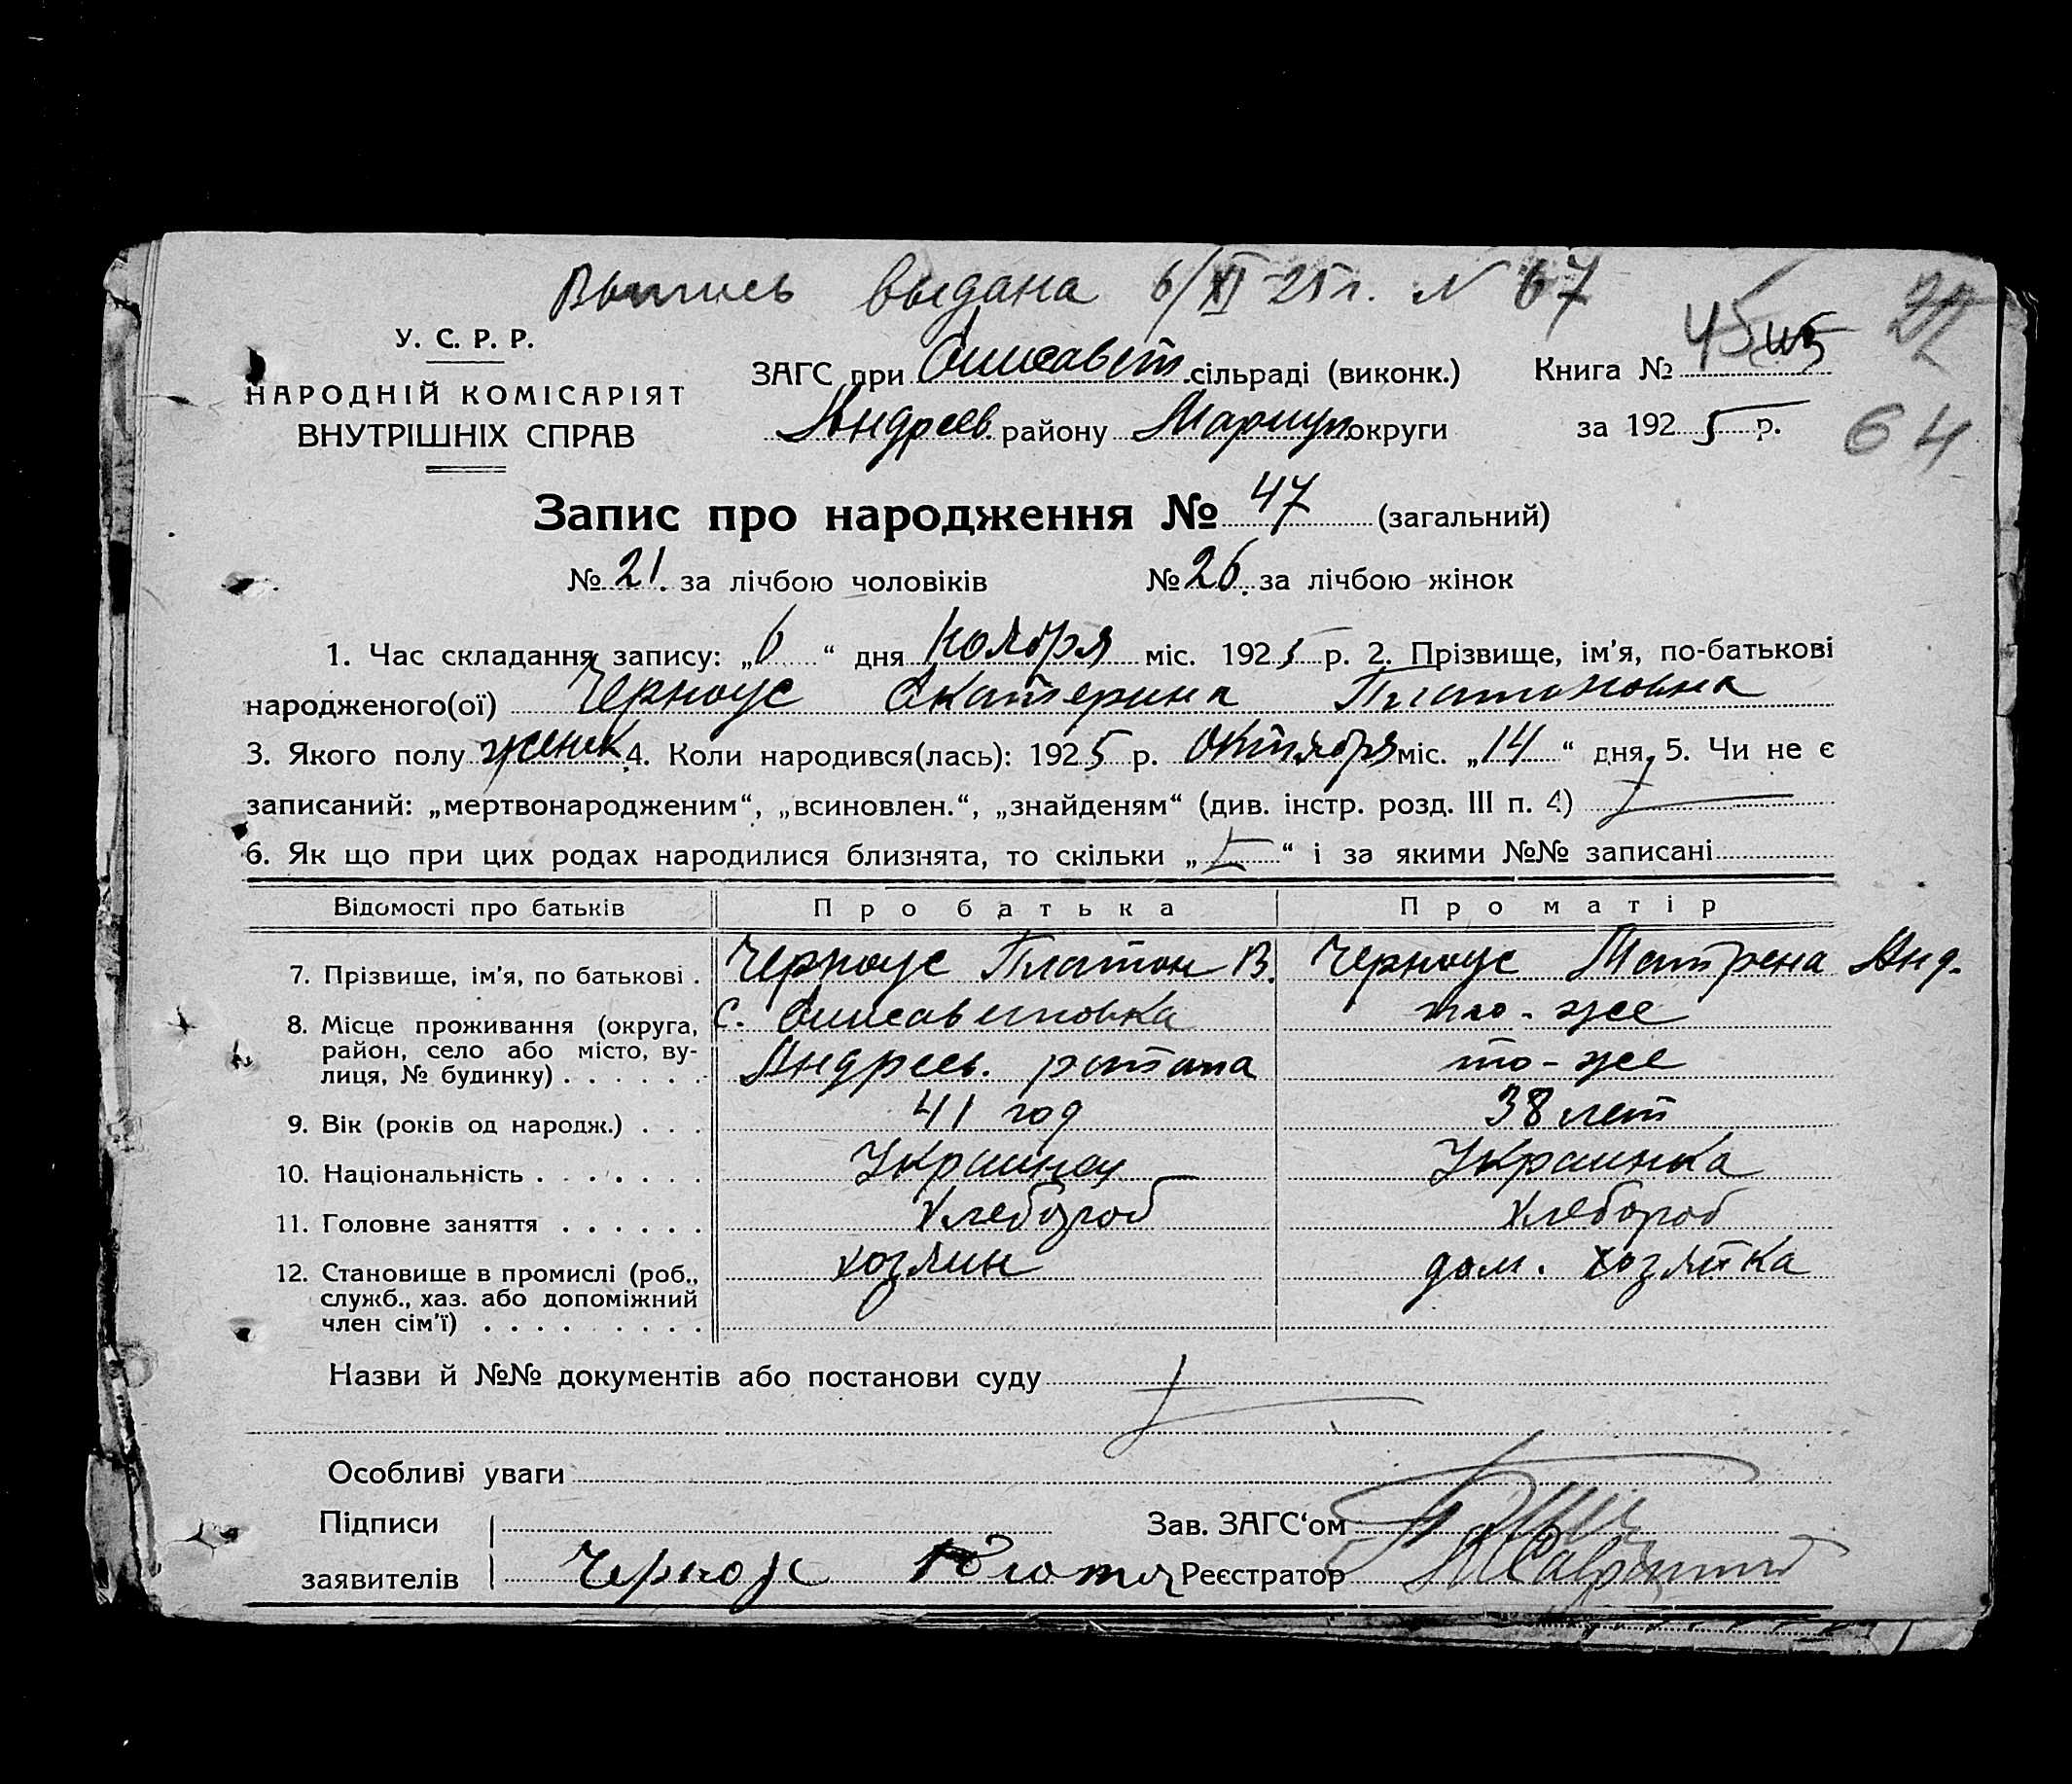 Выпись выдана 6/XI 25 г. N 67
У. С. Р. Р.
НАРОДНІЙ КОМІСАРІЯТ
ВНУТРІШНІХ СПРАВ
ЗАГС при Елисавет. сільраді (виконк.)
Андреев. району Мариуп. округи
Книга № 45
за 1925 р.
22
64
Запис про народження № 47 (загальний)
№ 21. за лічбою чоловіків № 26. за лічбою жінок
1. Час складання запису: „6“ дня ноября міс. 1925 р. 2. Прізвище, ім’я, по-батькові
народженого(ої) Черноус Екатерина Платоновна
3. Якого полу женск. 4. Коли народився(лась): 1925 р. Октября міс. „14“ дня, 5. Чи не є
записаний: „мертвонародженим“, „всиновлен.“, „знайденям“ (див. інстр. розд. III п. 4)
6. Як що при цих родах народилися близнята, то скільки „ “ і за якими №№ записані
Відомості про батьків Про батька Про матір
7. Прізвище, ім’я, по батькові . Черноус Платон В. Черноус Матрена Анд.
8. Місце проживання (округа, с. Елисаветовка то-же
район, село або місто, ву- Андреев. района то-же
лиця, № будинку) . . . . . .
9. Вік (років од народж.) . . . 41 год 38 лет
10. Національність . . . . . . . Украинец Украинка
11. Головне заняття . . . . . . Хлебороб Хлебороб
12. Становище в промислі (роб., хозяин дом. хозяйка
служб., хаз. або допоміжний
член сім’ї) . . . . . . . . .
Назви й №№ документів або постанови суду
Особливі уваги
Підписи Зав. ЗАГС‘ом
заявителів Черноус Реєстратор